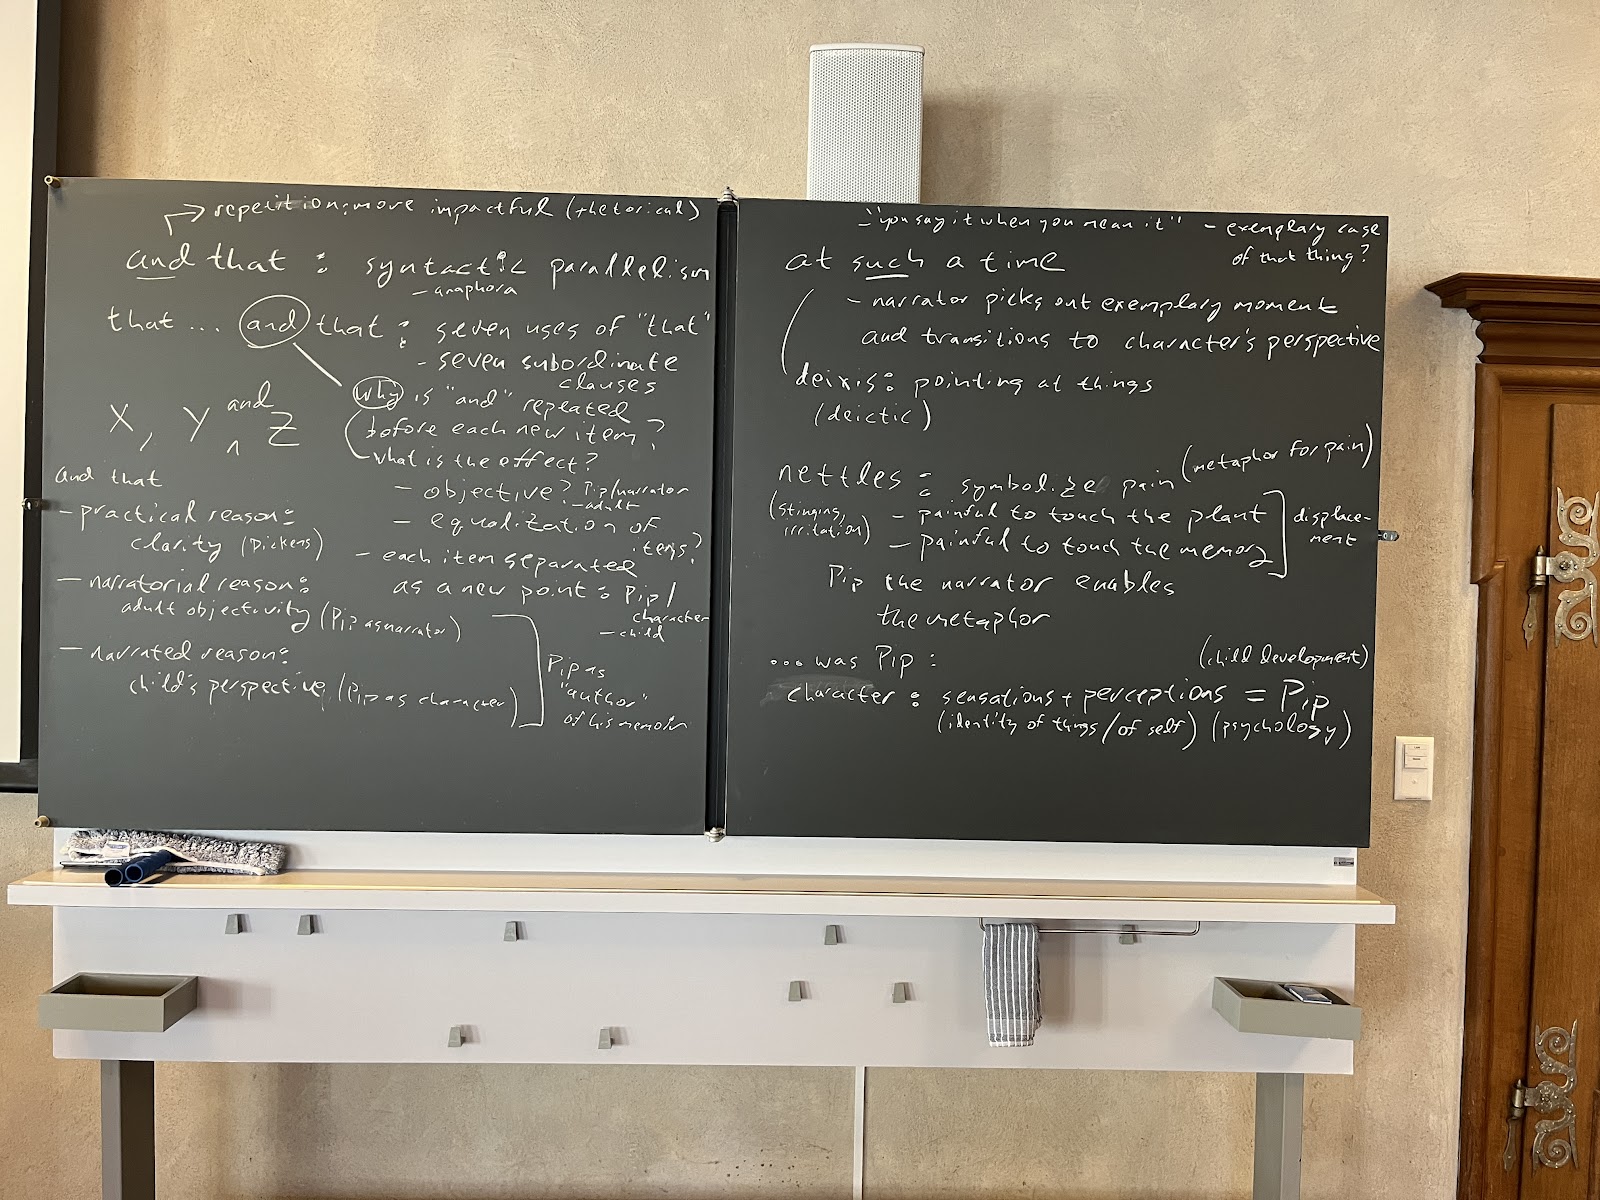 repetition: more impactful (rhetorical)
and that : syntactic parallelism
- anaphora
that ... and that : seven uses of "that"
- seven subordinate
clauses
X, Y and Z
why is "and" repeated
before each new item?
what is the effect?
- objective? Pip/narrator
- adult
- equalization of
items?
- each item separated
as a new point : Pip/
character
- child
and that
- practical reason:
clarity (Dickens)
- narratorial reason:
adult objectivity (Pip as narrator)
- narrated reason:
child's perspective (Pip as character)
Pip as
"author"
of his memoir
- "you say it when you mean it" - exemplary case
of that thing?
at such a time
- narrator picks out exemplary moment
and transitions to character's perspective
deixis: pointing at things
(deictic)
nettles : symbolize pain (metaphor for pain)
(stinging,
irritation)
- painful to touch the plant
- painful to touch the memory
displace-
ment
Pip the narrator enables
the metaphor
... was Pip :
(child development)
character : sensations + perceptions = Pip
(identity of things/of self) (psychology)